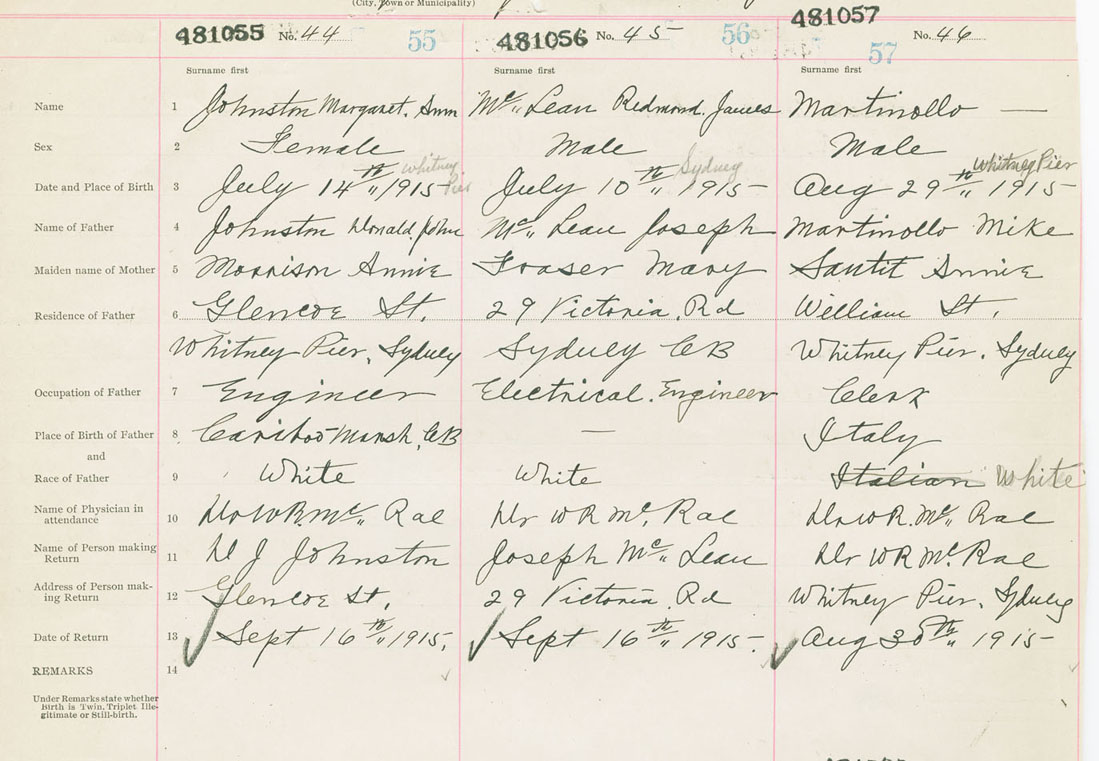 (City, Town or Municipality)
481055 No. 44 55 481056 No. 45 56 481057 No. 46 57
Surname first Surname first Surname first
Name 1 Johnston Margaret. Ann Mc„ Lean Redmond. James Martinollo —
Sex 2 Female Male Male
Whitney Pier Sydney Whitney Pier
Date and Place of Birth 3 July 14th„ 1915 July 10th„ 1915 – Aug 29th„ 1915 –
Name of Father 4 Johnston Donald. John Mc„ Lean Joseph Martinollo Mike
Maiden name of Mother 5 Morrison Annie Fraser Mary Santit Annie
Residence of Father 6 Glencoe St. 29 Victoria. Rd William St.
Whitney Pier. Sydney Sydney CB Whitney Pier. Sydney
Occupation of Father 7 Engineer Electrical. Engineer Clerk
Place of Birth of Father 8 Cariboo Marsh, CB — Italy
and
Race of Father 9 White White Italian White
Name of Physician in
attendance 10 Dr W R Mc„ Rae Dr W R Mc. Rae Dr W R. Mc„ Rae
Name of Person making
Return 11 D J Johnston Joseph Mc„ Lean Dr W R Mc. Rae
Address of Person mak-
ing Return 12 Glencoe St. 29 Victoria. Rd Whitney Pier. Sydney
Date of Return 13 Sept 16th„ 1915. Sept 16th„ 1915 – Aug 30th„ 1915 –
REMARKS 14
Under Remarks state whether
Birth is Twin, Triplet Ille-
gitimate or Still-birth.